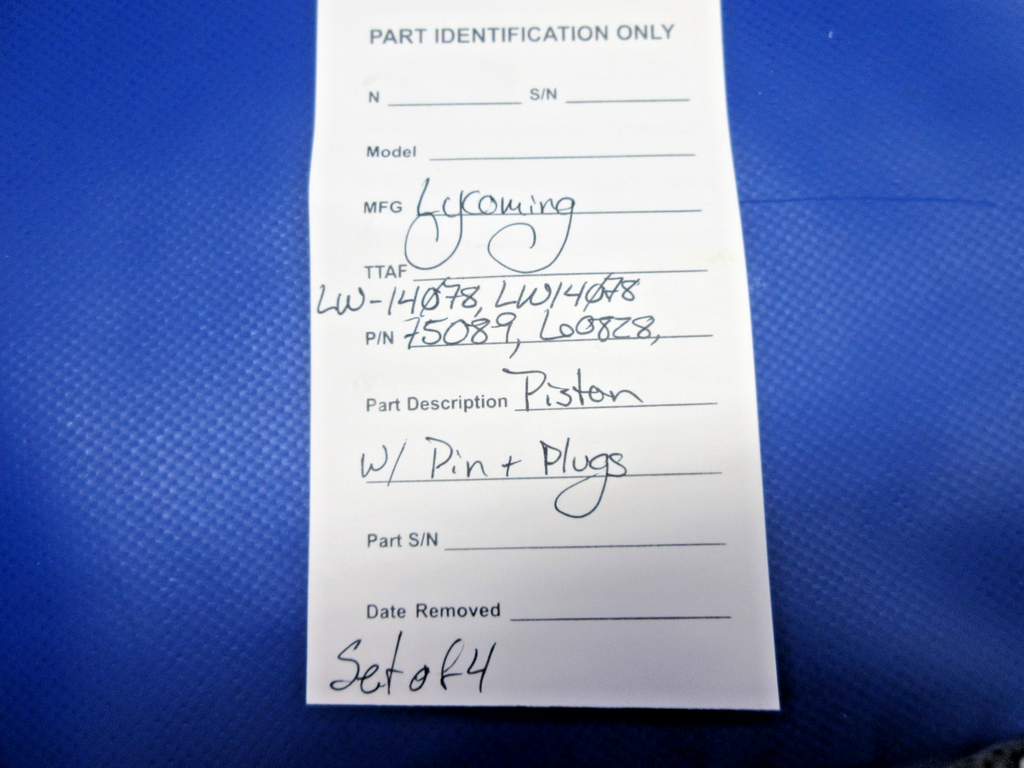 PART IDENTIFICATION ONLY
N S/N
Model
MFG Lycoming
TTAF
LW-14078, LW14078
P/N 75089, 60828,
Part Description Piston
W/ Pin + Plugs
Part S/N
Date Removed
Set of 4